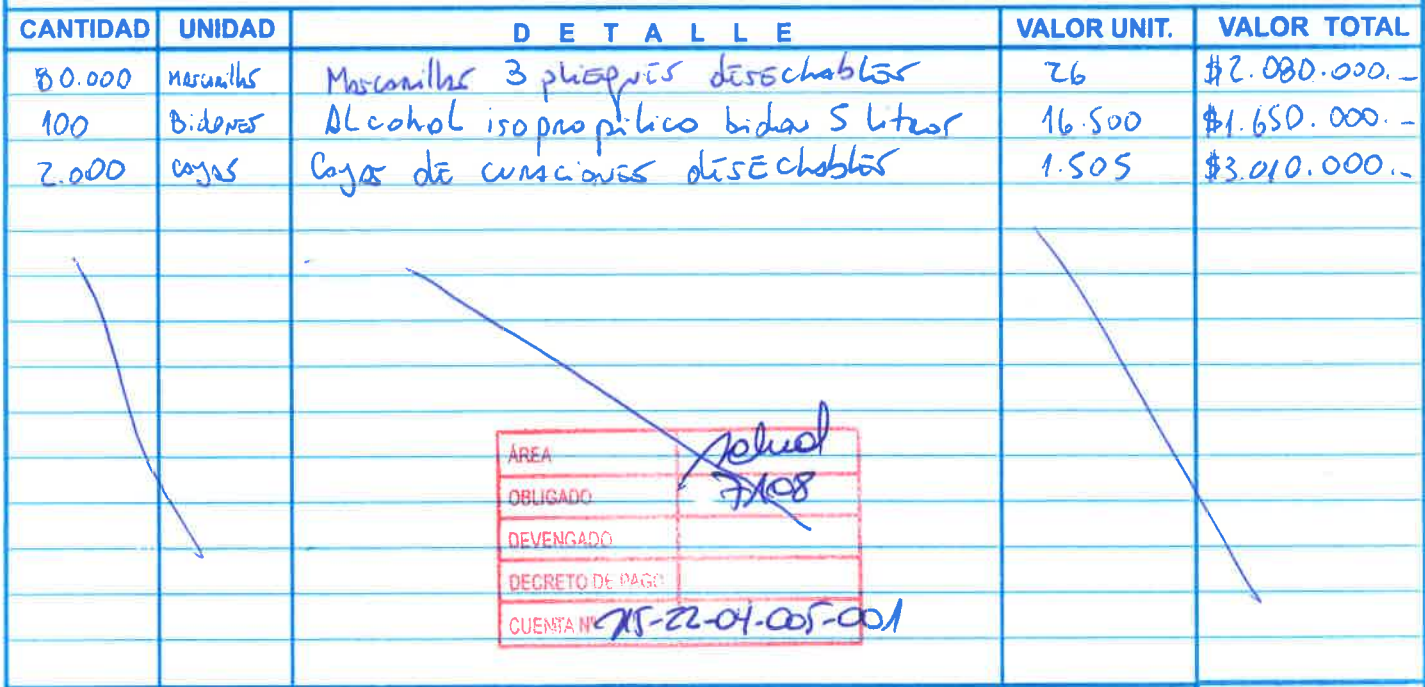 CANTIDAD UNIDAD DETALLE VALOR UNIT. VALOR TOTAL
80.000 Mascarillas Mascarillas 3 pliegues desechables 26 $2.080.000.-
100 Bidones Alcohol isopropilico bidon 5 litros 16.500 $1.650.000.-
2.000 cajas Cajas de curaciones desechables 1.505 $3.010.000.-
ÁREA Salud
OBLIGADO 7108
DEVENGADO
DECRETO DE PAGO
CUENTA N° 215-22-04-005-001